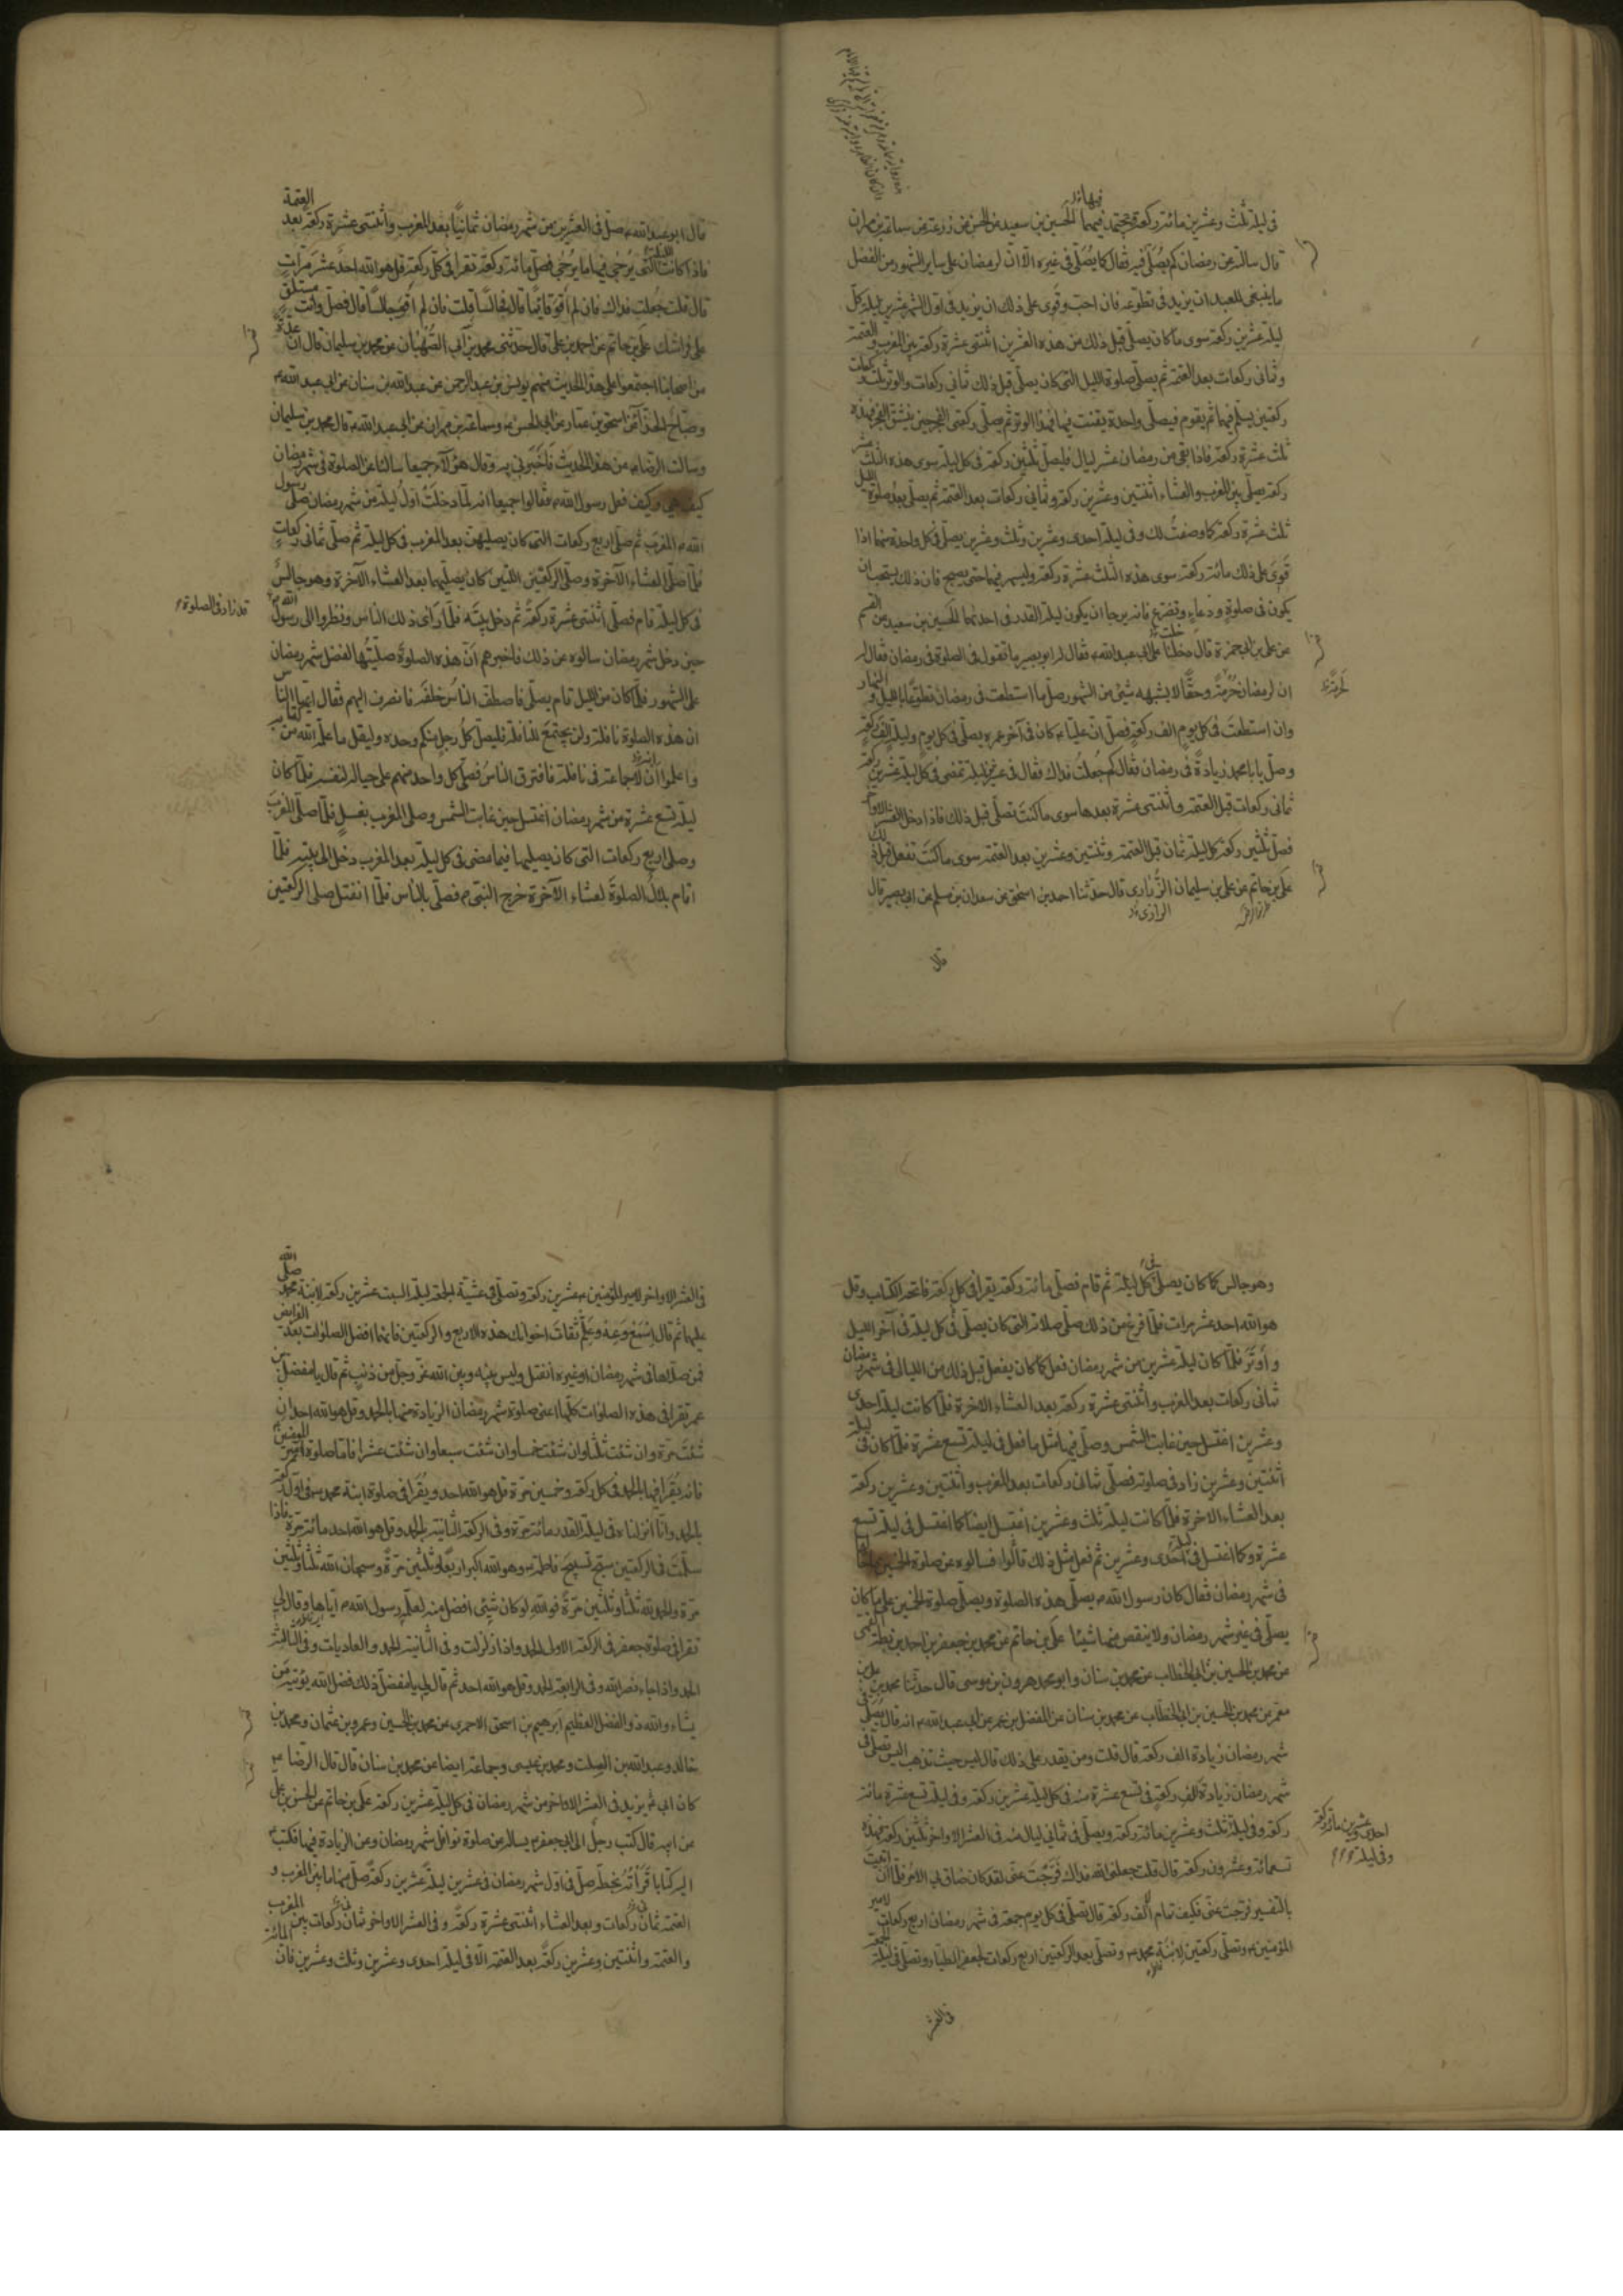 في ليلة ثلث وعشرين مائة ركعة يجتهد فيهما الحسين بن سعيد عن الحسن عن زرعة عن سماعة بن مهران
قال سالته عن رمضان كم يصلى فيه فقال كما يصلى في غيره الا ان لرمضان على ساير الشهور من الفضل
ما ينبغي للعبد ان يزيد في تطوعه فان احب وقوى على ذلك ان يزيد في اول الشهر عشرين ليلة كل
ليلة عشرين ركعة سوى ما كان يصلى قبل ذلك من هذه العشرين اثنتى عشرة ركعة بين المغرب والعتمة
وثماني ركعات بعد العتمة ثم يصلى صلوة الليل التي كان يصلى قبل ذلك ثماني ركعات والوتر ثلث ركعات
ركعتين يسلم فيهما ثم يقوم فيصلى واحدة يقنت فيها فهذا الوتر ثم يصلى ركعتى الفجر حين ينشق الفجر فهذه
ثلث عشرة ركعة فاذا بقى من رمضان عشر ليال فليصل ثلثين ركعة في كل ليلة سوى هذه الثلث عشر
ركعة يصلى بين المغرب والعشاء اثنتين وعشرين ركعة وثماني ركعات بعد العتمة ثم يصلى بعد صلوة الليل
ثلث عشرة ركعة كما وصفت لك وفي ليلة احدى وعشرين وثلث وعشرين يصلى في كل واحدة منهما اذا
قوى على ذلك مائة ركعة سوى هذه الثلث عشرة ركعة وليسهر فيهما حتى يصبح فان ذلك يستحب ان
يكون في صلوة ودعاء وتضرع فانه يرجا ان يكون ليلة القدر في احدهما الحسين بن سعيد عن القسم
عن على بن ابي حمزة قال دخلنا على ابي عبد الله ع فقال له ابو بصير ما تقول في الصلوة في رمضان فقال له
ان لرمضان حرمة وحقا لا يشبهه شئ من الشهور صل ما استطعت في رمضان تطوعا بالليل والنهار
وان استطعت في كل يوم الف ركعة فصل ان عليا ع كان في آخر عمره يصلى في كل يوم وليلة الف ركعة
وصل يا با محمد زيادة في رمضان فقال كم جعلت فداك فقال في عشرين ليلة تمضى في كل ليلة عشرين ركعة
ثماني ركعات قبل العتمة واثنتى عشرة بعدها سوى ما كنت تصلى قبل ذلك فاذا دخل العشر الاواخر
فصل ثلثين ركعة كل ليلة ثمان قبل العتمة وثنتين وعشرين بعد العتمة سوى ما كنت تفعل قبل ذلك
على بن حاتم عن على بن سليمان الزراري قال حدثنا احمد بن اسحق عن سعدان بن مسلم عن ابي بصير قال
الرازي
قال
قال ابو عبد الله ع صل في العشرين من شهر رمضان ثمانيا بعد المغرب واثنتى عشرة ركعة بعد العتمة
فاذا كانت الليلة التي يرجى فيها ما يرجى فصل مائة ركعة تقرا في كل ركعة قل هو الله احد عشر مرات
قال قلت جعلت فداك فان لم اقو قائما قال فجالسا قلت فان لم اقو جالسا قال فصل وانت مستلق
على فراشك على بن حاتم عن احمد بن على قال حدثنى محمد بن ابي الصهبان عن محمد بن سليمان قال ان عدة
من اصحابنا اجتمعوا على هذا الحديث منهم يونس بن عبد الرحمن عن عبد الله بن سنان عن ابي عبد الله ع
وصباح الحذاء عن اسحق بن عمار عن ابي الحسن ع وسماعة بن مهران عن ابي عبد الله ع قال محمد بن سليمان
وسالت الرضا ع عن هذا الحديث فاخبرني به وقال هؤلاء جميعا سالنا عن الصلوة في شهر رمضان
كيف هي وكيف فعل رسول الله ص فقالوا جميعا انه لما دخلت اول ليلة من شهر رمضان صلى رسول
الله ص المغرب ثم صلى اربع ركعات التي كان يصليهن بعد المغرب في كل ليلة ثم صلى ثماني ركعات
فلما صلى العشاء الآخرة وصلى الركعتين اللتين كان يصليهما بعد العشاء الآخرة وهو جالس
في كل ليلة قام فصلى اثنتى عشرة ركعة ثم دخل بيته فلما راى ذلك الناس ونظروا الى رسول الله ص
قد زاد في الصلوة
حين دخل شهر رمضان سالوه عن ذلك فاخبرهم ان هذه الصلوة صليتها لفضل شهر رمضان
على الشهور فلما كان من الليل قام يصلى فاصطف الناس خلفه فانصرف اليهم فقال ايها الناس
ان هذه الصلوة نافلة ولن يجتمع للنافلة فليصل كل رجل منكم وحده وليقل ما علمه الله من كتابه
واعلموا ان لا جماعة في نافلة فافترق الناس فصلى كل واحد منهم على حياله لنفسه فلما كان
ليلة تسع عشرة من شهر رمضان اغتسل حين غابت الشمس وصلى المغرب بغسل فلما صلى المغرب
وصلى اربع ركعات التي كان يصليها فيما مضى في كل ليلة بعد المغرب دخل الى بيته فلما
اقام بلال الصلوة لعشاء الآخرة خرج النبى ص فصلى بالناس فلما انفتل صلى الركعتين
وهو جالس كما كان يصلى في كل ليلة ثم قام فصلى مائة ركعة يقرا في كل ركعة فاتحة الكتاب وقل
هو الله احد عشر مرات فلما فرغ من ذلك صلى صلاته التي كان يصلى في كل ليلة في آخر الليل
واوتر فلما كان ليلة عشرين من شهر رمضان فعل كما كان يفعل قبل ذلك من الليالى في شهر رمضان
ثماني ركعات بعد المغرب واثنتى عشرة ركعة بعد العشاء الاخرة فلما كانت ليلة احدى
وعشرين اغتسل حين غابت الشمس وصلى فيها مثل ما فعل في ليلة تسع عشرة فلما كان في ليلة
اثنتين وعشرين زاد في صلوته فصلى ثماني ركعات بعد المغرب واثنتين وعشرين ركعة
بعد العشاء الاخرة فلما كانت ليلة ثلث وعشرين اغتسل ايضا كما اغتسل في ليلة تسع
عشرة وكما اغتسل في ليلة احدى وعشرين ثم فعل مثل ذلك قالوا فسالوه عن صلوة الخمسين ما حالها
في شهر رمضان فقال كان رسول الله ص يصلى هذه الصلوة ويصلى صلوة الخمسين على ما كان
يصلى في غير شهر رمضان ولا ينقص منها شيئا على بن حاتم عن محمد بن جعفر بن احمد بن بطة القمى
عن محمد بن الحسين بن ابي الخطاب عن محمد بن سنان وابو محمد هرون بن موسى قال حدثنا محمد بن على بن
معمر عن محمد بن الحسين بن ابي الخطاب عن محمد بن سنان عن المفضل بن عمر عن ابي عبد الله ع انه قال يصلى في
شهر رمضان زيادة الف ركعة قال قلت ومن يقدر على ذلك قال ليس حيث تذهب اليس تصلى في
شهر رمضان زيادة الف ركعة في تسع عشرة منه في كل ليلة عشرين ركعة وفي ليلة تسع عشرة مائة
ركعة وفي ليلة ثلث وعشرين مائة ركعة ويصلى في ثماني ليال منه في العشر الاواخر ثلثين ركعة فهذه
احدى وعشرين مائة ركعة
وفي ليلة
تسعمائة وعشرون ركعة قال قلت جعلنى الله فداك فرجت عنى لقد كان ضاق بي الامر فلما ان اتيت
بالتفسير فرجت عنى فكيف تمام الالف ركعة قال تصلى في كل يوم جمعة في شهر رمضان اربع ركعات لامير
المؤمنين ع وتصلى ركعتين لابنة محمد ص وتصلى بعد الركعتين اربع ركعات لجعفر الطيار وتصلى في ليلة الجمعة
في العشر
في العشر الاواخر لامير المؤمنين ع عشرين ركعة وتصلى في عشية الجمعة ليلة السبت عشرين ركعة لابنة محمد صلى الله
عليهما ثم قال اسمع وعه وعلم ثقات اخوانك هذه الاربع والركعتين فانهما افضل الصلوات بعد الفرايض
فمن صلاها في شهر رمضان او غيره انفتل وليس بينه وبين الله عز وجل من ذنب ثم قال يا مفضل بن
عمر تقرا في هذه الصلوات كلها اعنى صلوة شهر رمضان الزيادة منها بالحمد وقل هو الله احد ان
شئت مرة وان شئت ثلثا وان شئت خمسا وان شئت سبعا وان شئت عشرا فاما صلوة امير المؤمنين
فانه يقرا فيها بالحمد في كل ركعة وخمسين مرة قل هو الله احد ويقرا في صلوة ابنة محمد ص في اول ركعة
بالحمد وانا انزلناه في ليلة القدر مائة مرة وفي الركعة الثانية بالحمد وقل هو الله احد مائة مرة فاذا
سلمت في الركعتين سبح تسبيح فاطمة ع وهو الله اكبر اربعا وثلثين مرة وسبحان الله ثلثا وثلثين
مرة والحمد لله ثلثا وثلثين مرة فوالله لو كان شئ افضل منه لعلمه رسول الله ص اياها وقال لي
تقرا في صلوة جعفر في الركعة الاولى الحمد واذا زلزلت وفي الثانية الحمد والعاديات وفي الثالثة
الحمد واذا جاء نصر الله وفي الرابعة الحمد وقل هو الله احد ثم قال لي يا مفضل ذلك فضل الله يؤتيه من
يشاء والله ذو الفضل العظيم ابرهيم بن اسحق الاحمرى عن محمد بن الحسين وعمرو بن عثمان ومحمد بن
خالد وعبد الله بن الصلت ومحمد بن عيسى وجماعة ايضا عن محمد بن سنان قال قال الرضا ع
كان ابي يزيد في العشر الاواخر من شهر رمضان في كل ليلة عشرين ركعة على بن حاتم عن الحسن بن على
عن ابيه قال كتب رجل الى ابي جعفر ع يساله عن صلوة نوافل شهر رمضان وعن الزيادة فيها فكتب ع
اليه كتابا قراته بخطه صل في اول شهر رمضان في عشرين ليلة عشرين ركعة صل منها ما بين المغرب و
العتمة ثمان ركعات وبعد العشاء اثنتى عشرة ركعة وفي العشر الاواخر ثمان ركعات بين المغرب
والعتمة واثنتين وعشرين ركعة بعد العتمة الا في ليلة احدى وعشرين وثلث وعشرين فان المائة